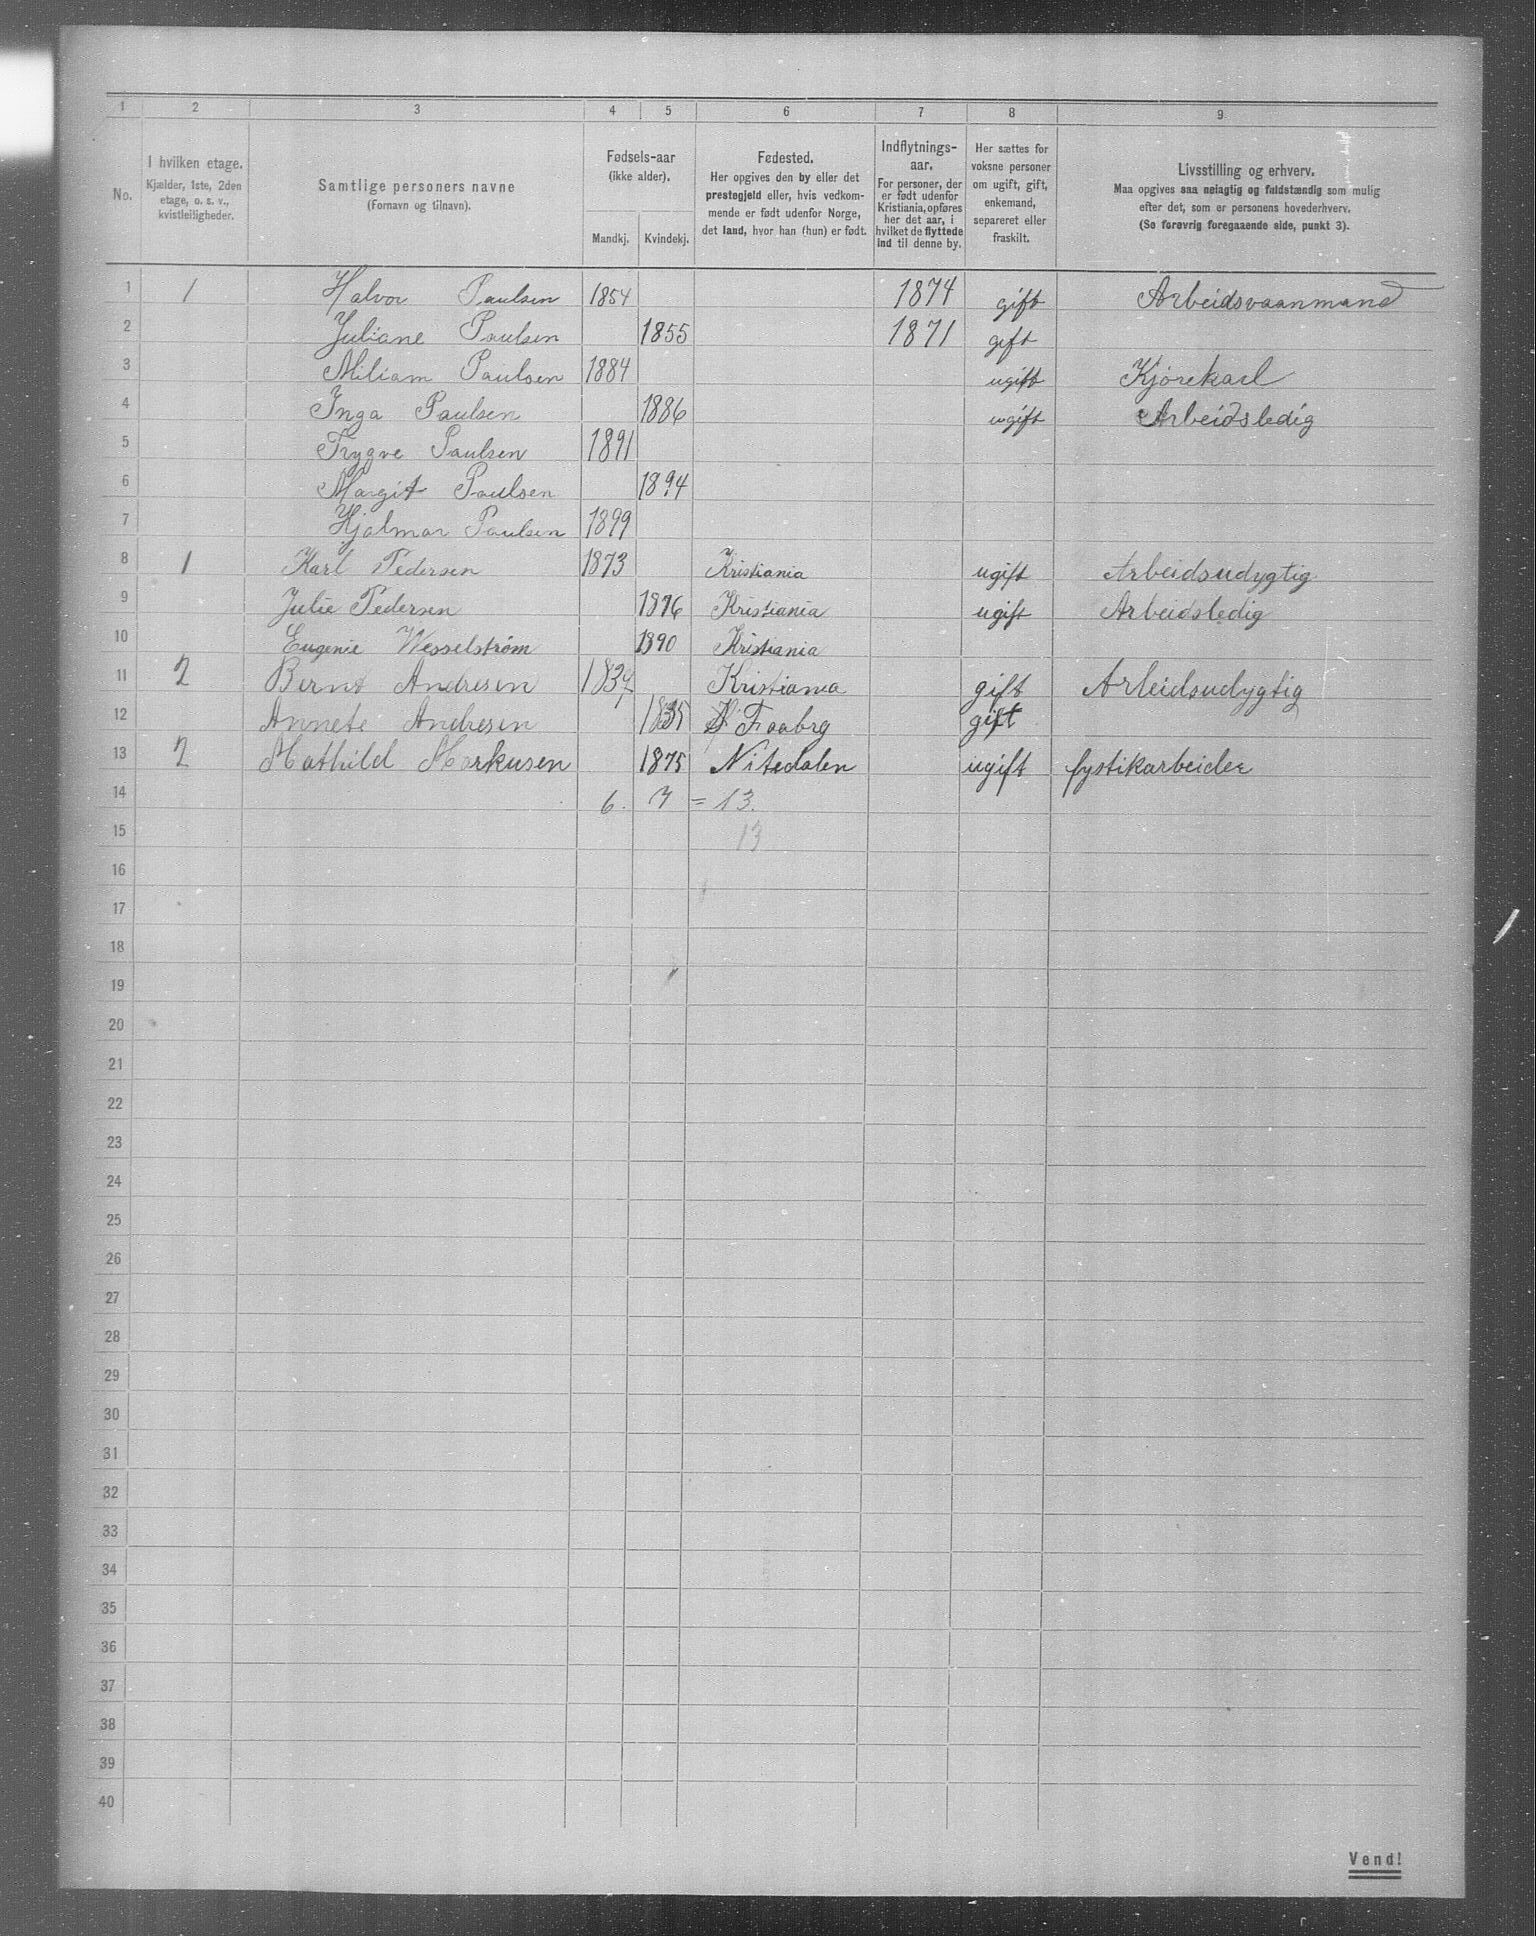 1 2 3 4 5 6 7 8 9
No.
I hvilken etage.
Kjælder, 1ste, 2den
etage, o. s. v.,
kvistleiligheder.
Samtlige personers navne
(Fornavn og tilnavn).
Fødsels-aar
(ikke alder).
Mandkj. Kvindekj.
Fødested.
Her opgives den by eller det
prestegjeld eller, hvis vedkom-
mende er født udenfor Norge,
det land, hvor han (hun) er født.
Indflytnings-
aar.
For personer, der
er født udenfor
Kristiania, opføres
her det aar, i
hvilket de flyttede
ind til denne by.
Her sættes for
voksne personer
om ugift, gift,
enkemand,
separeret eller
fraskilt.
Livsstilling og erhverv.
Maa opgives saa nøiagtig og fuldstændig som mulig
efter det, som er personens hovederhverv.
(Se forøvrig foregaaende side, punkt 3).
1 1 Halvor Paulsen 1854 1874 gift Arbeidsvaanmand
2 Juliane Paulsen 1855 1871 gift
3 Miliam Paulsen 1884 ugift Kjørekarl
4 Inga Paulsen 1886 ugift Arbeidsledig
5 Trygve Paulsen 1891
6 Margit Paulsen 1894
7 Hjalmar Paulsen 1899
8 1 Karl Pedersen 1873 Kristiania ugift Arbeidsudygtig
9 Julie Pedersen 1876 Kristiania ugift Arbeidsledig
10 Eugenie Wesselstrøm 1890 Kristiania
11 2 Bernt Andresen 1834 Kristiania gift Arbeidsudygtig
12 Annete Andresen 1835 Faabrg gift
13 2 Mathild Markusen 1875 Nitedalen ugift fystikarbeider
14 6. 7 = 13.
15 13
16
17
18
19
20
21
22
23
24
25
26
27
28
29
30
31
32
33
34
35
36
37
38
39
40
Vend!